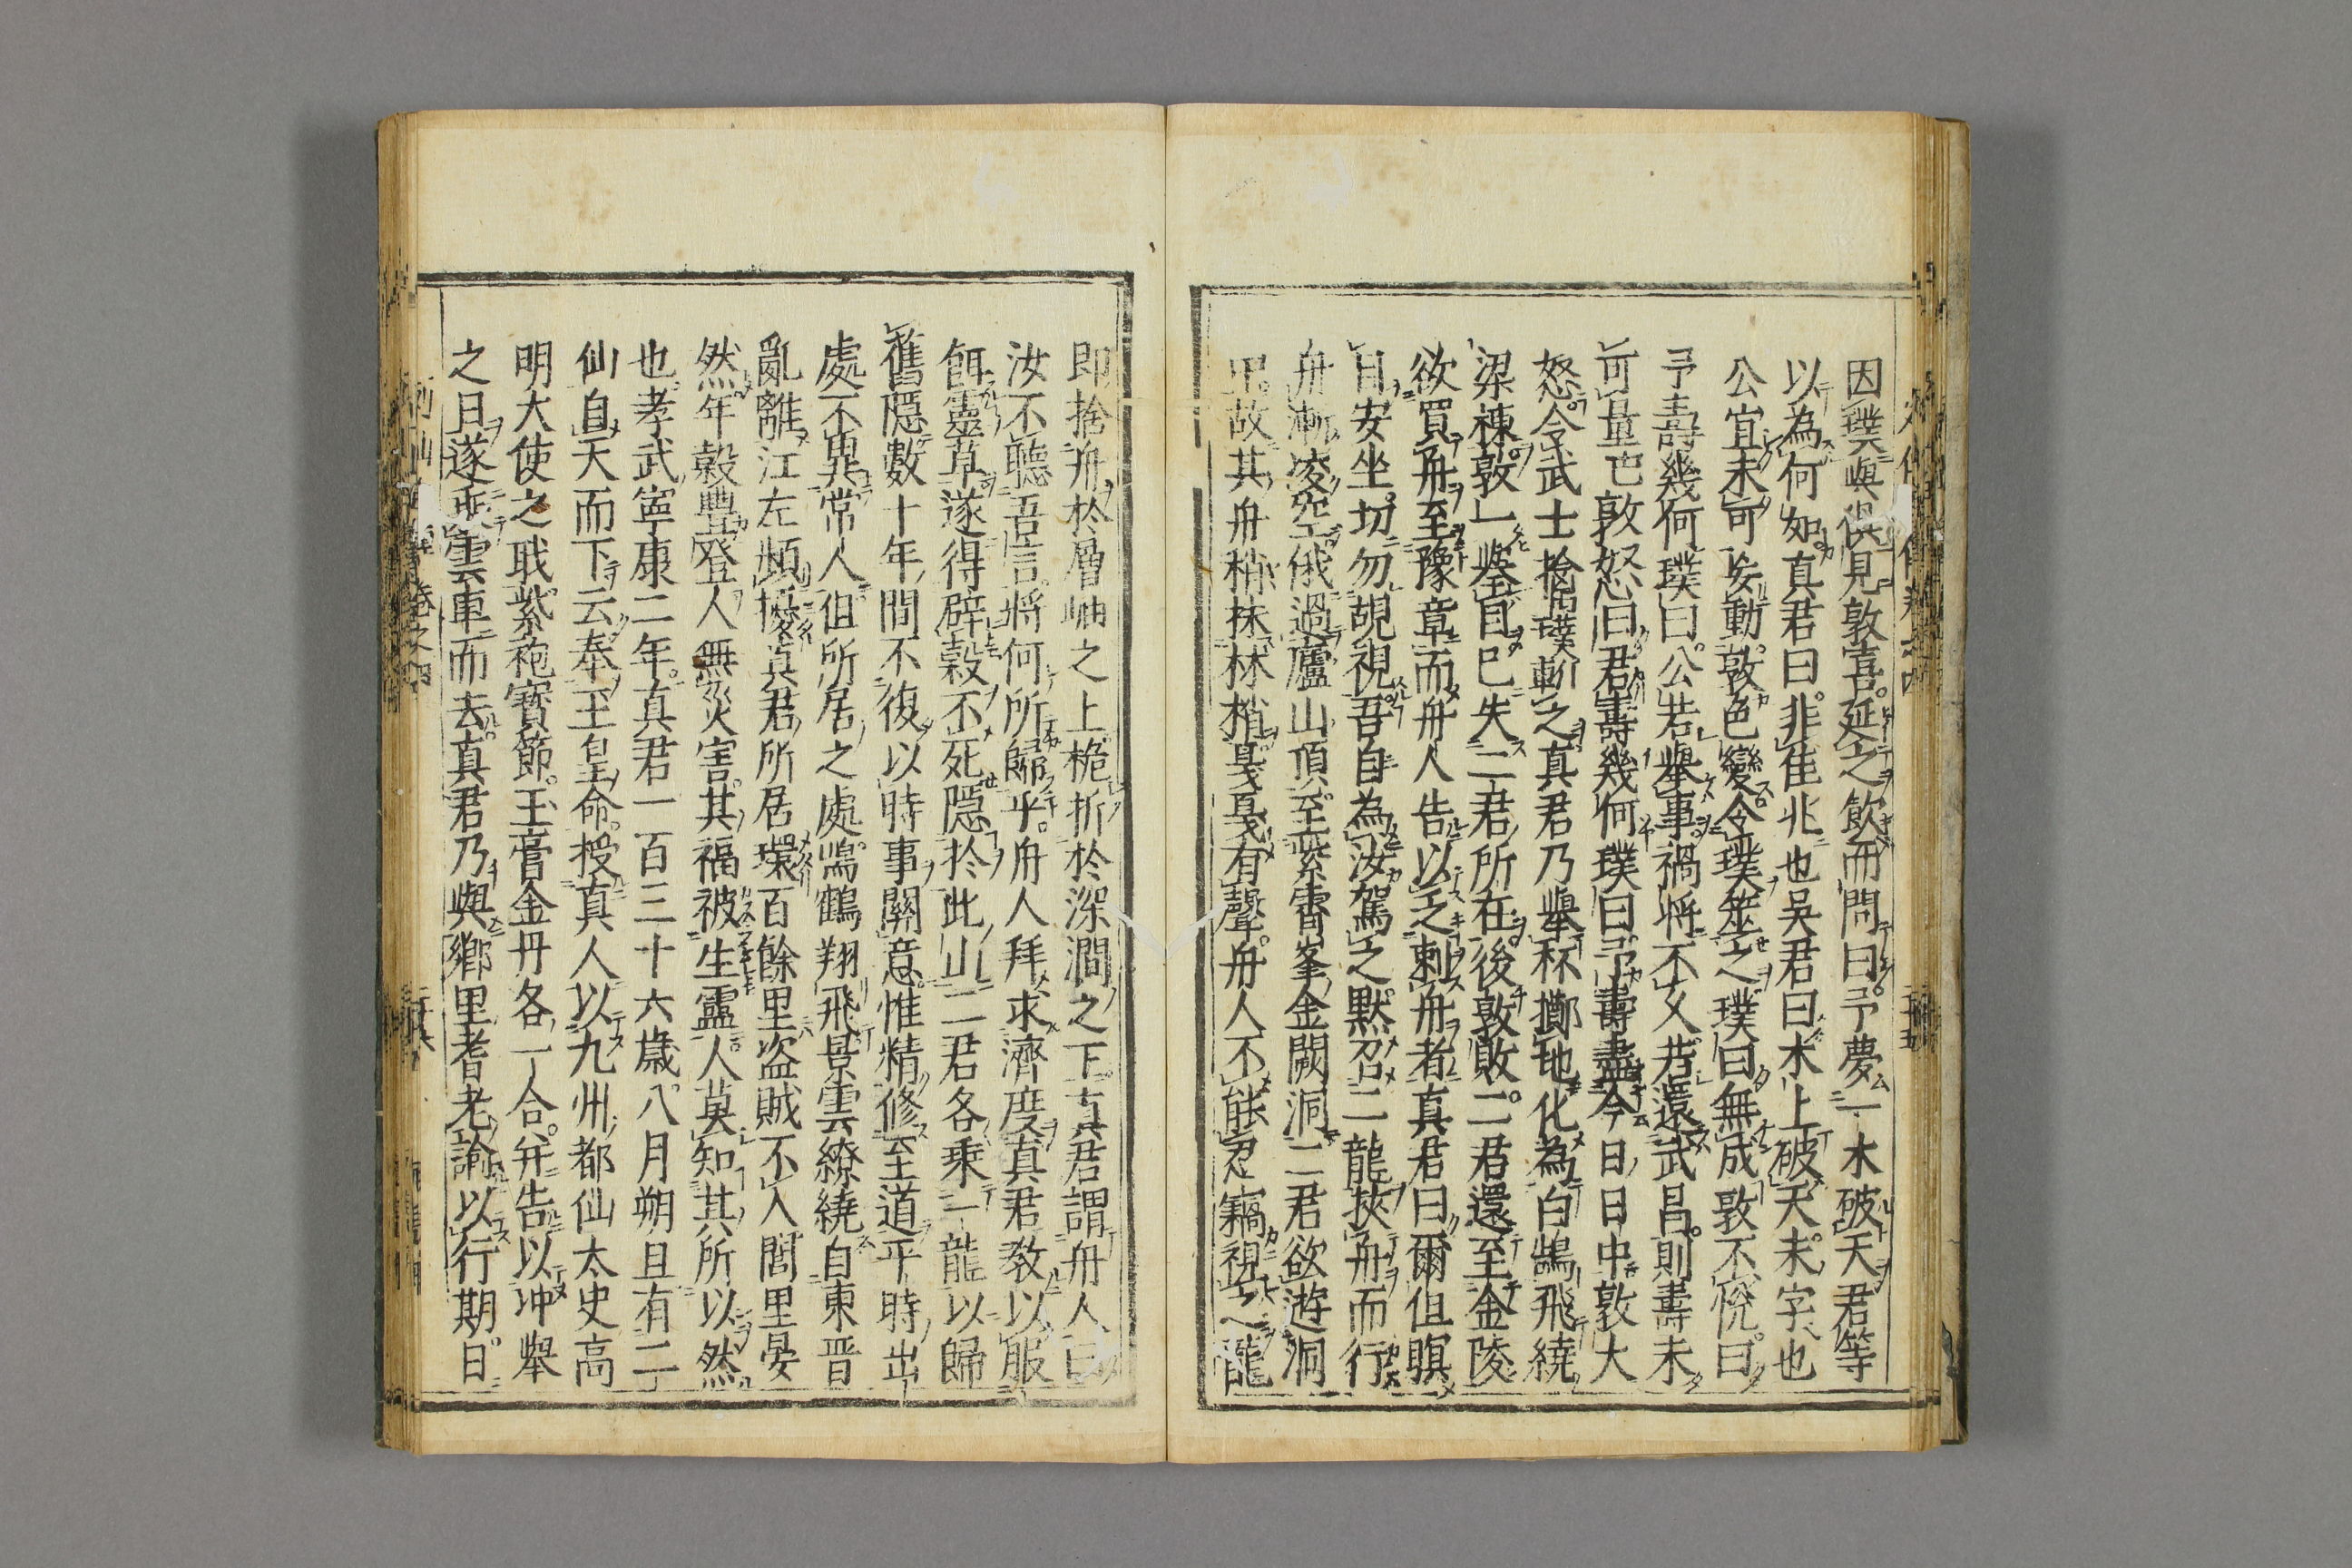 因璞與俱見敦喜延之飲而問曰予夢一木破天君等
以為何如真君曰非佳兆也吳君曰木上破天未字也
公宜未可妄動敦色變令璞筮之璞曰無成敦不悅曰
予壽幾何璞曰公若舉事禍將不久若還武昌則壽未
可量也敦怒曰君壽幾何璞曰予壽盡今日日中敦大
怒令武士擒璞斬之真君乃舉杯擲地化為白鵠飛繞
梁棟敦一舉目已失二君所在後敦敗二君還至金陵
欲買舟至豫章而舟人告以乏刺舟者真君曰爾但瞑
目安坐切勿覘視吾自為汝駕之默召二龍挾舟而行
舟漸凌空俄過廬山頂至紫霄峯金闕洞二君欲遊洞
中故其舟稍抹林梢戛戛有聲舟人不能忍竊視之龍
即捨舟於層岫之上桅折於深澗之下真君謂舟人曰
汝不聽吾言將何所歸乎舟人拜求濟度真君教以服
餌靈草遂得辟穀不死隱於此山二君各乘一龍以歸
舊隱數十年間不復以時事關意惟精修至道平時出
處不異常人但所居之處鸞鶴翔飛景雲繚繞自東晉
亂離江左頻擾真君所居環百餘里盜賊不入閭里晏
然年穀豐登人無災害其福被生靈人莫知其所以然
也孝武寧康二年真君一百三十六歲八月朔旦有二
仙自天而下云奉玉皇命授真人以九州都仙太史高
明大使之職紫袍寶節玉膏金丹各一合并告以冲舉
之日遂乘雲車而去真君乃與鄉里耆老諭以行期日